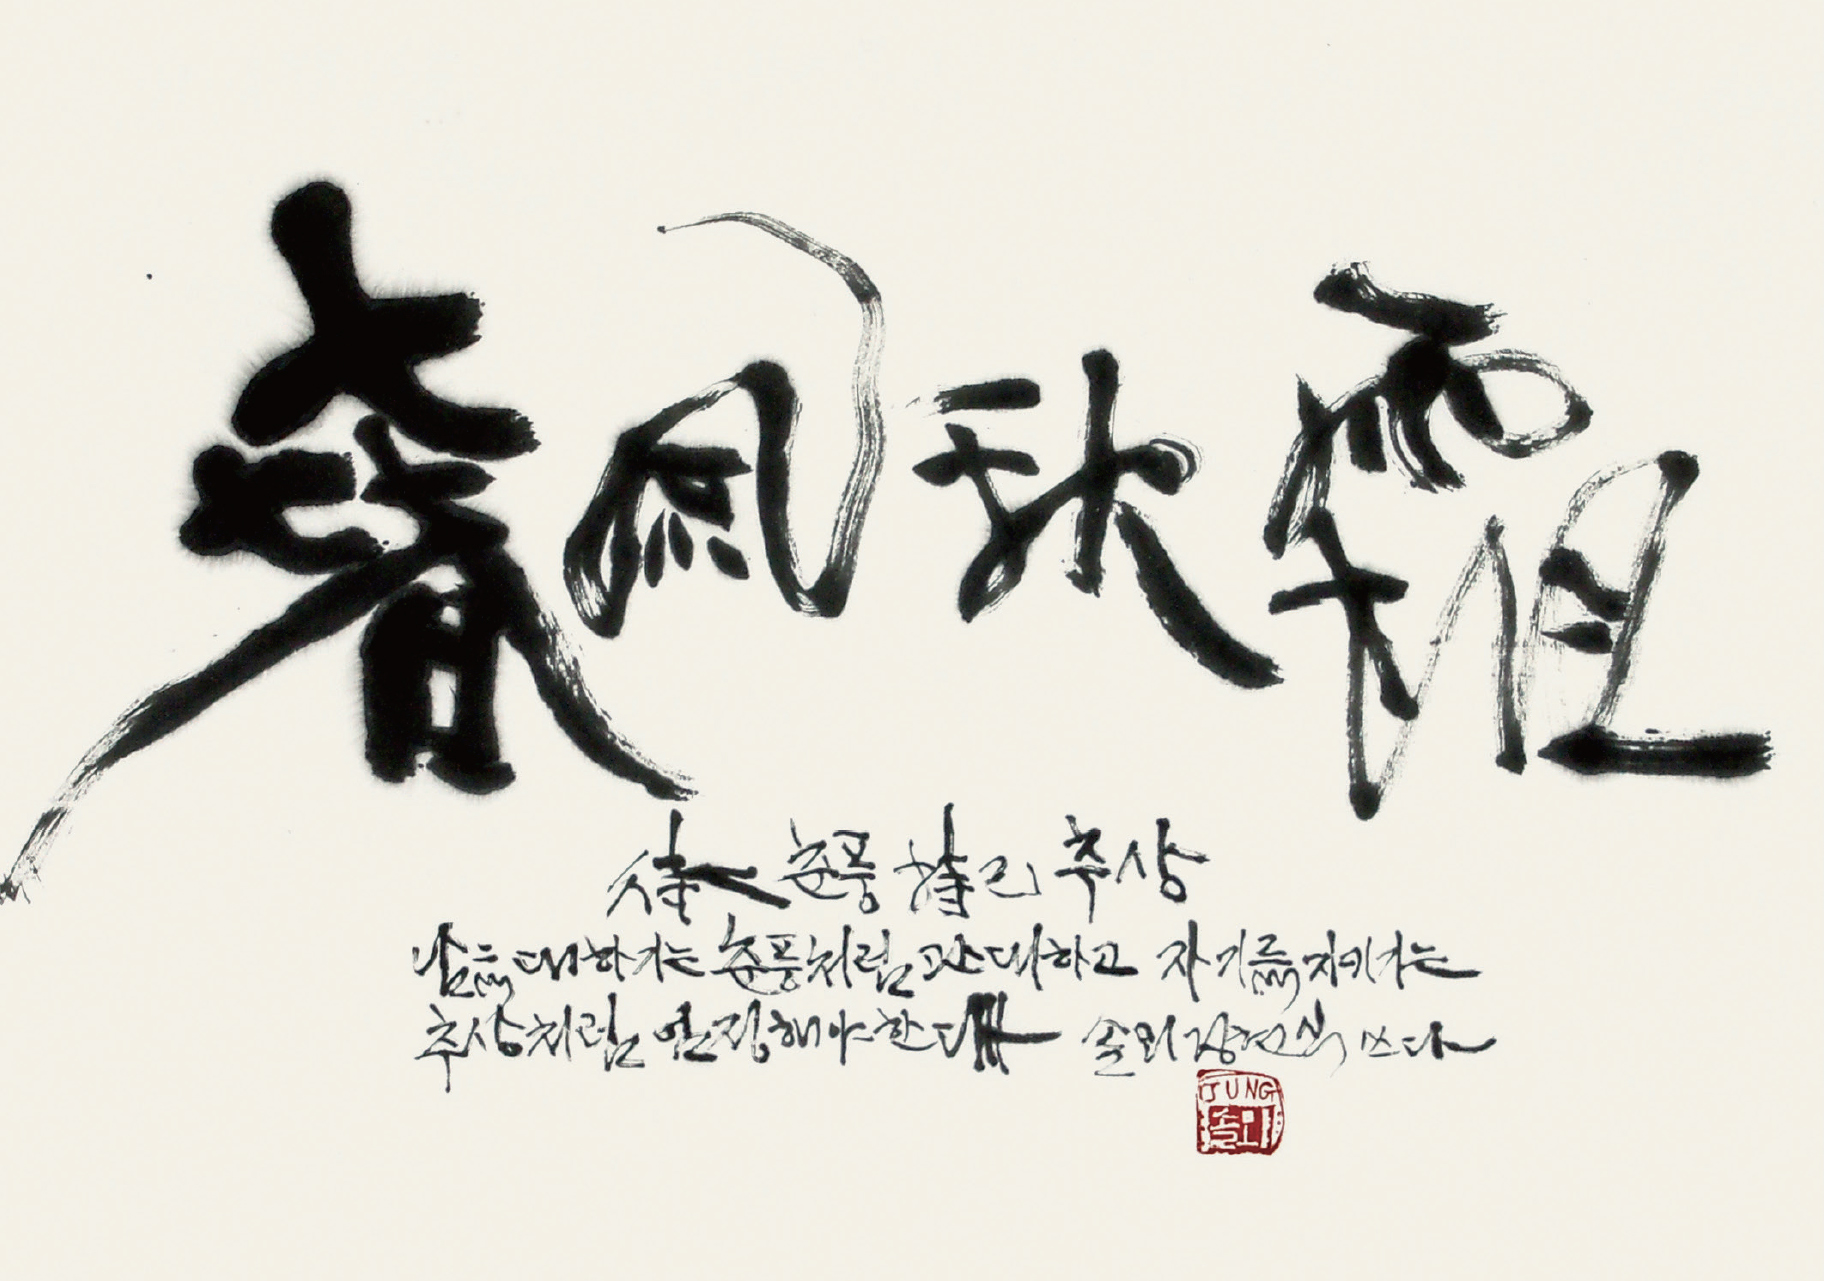 春風秋霜
待人 춘풍 持己 추상
남을 대하기는 춘풍처럼 관대하고 자기를 지키기는
추상처럼 엄정해야 한다 솔뫼 정현식 쓰다
JUNG
솔뫼